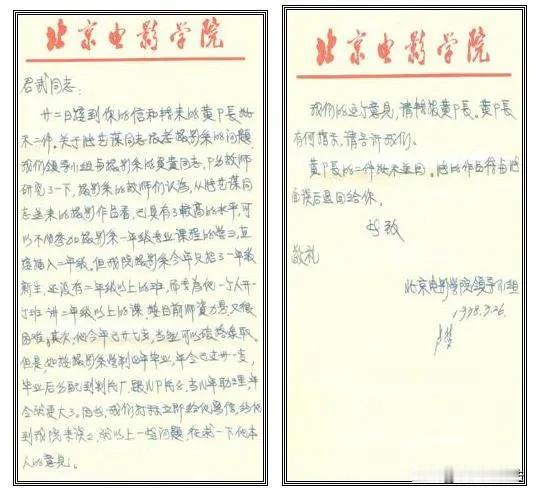 北京电影学院
君武同志：
廿二日接到你的信和转来的黄部长批
示二件。关于张艺谋同志报考摄影系的问题
我们领导小组与摄影系的负责同志，部分教师
研究了一下，摄影系的教师们认为，从张艺谋同
志送来的摄影作品看，已具有了较高的水平，可
以不须参加摄影系一年级专业课程的学习，直
接插入二年级。但我院摄影系今年只招了一年级
新生，还没有二年级以上的班，而要为他一个人开一
个班讲二年级以上的课，按目前师资力量又很
困难。其次，他今年已廿七岁，当然可以破格录取。
但是，如按摄影系学制四年毕业，年令已卅一岁，
毕业后分配到制片厂，跟几部片子，当几年助理，年
令就更大了。因此，我们打算立即给他写信，约他
到我院来谈谈，就以上一些问题，征求一下他本
人的意见。
北京电影学院
我们的这个意见，请转报黄部长。黄部长
有何指示，请告诉我们。
黄部长的二件批示退回。他的作品待与他
面谈后退回给你。
此致
敬礼
北京电影学院领导小组
1978.9.26.